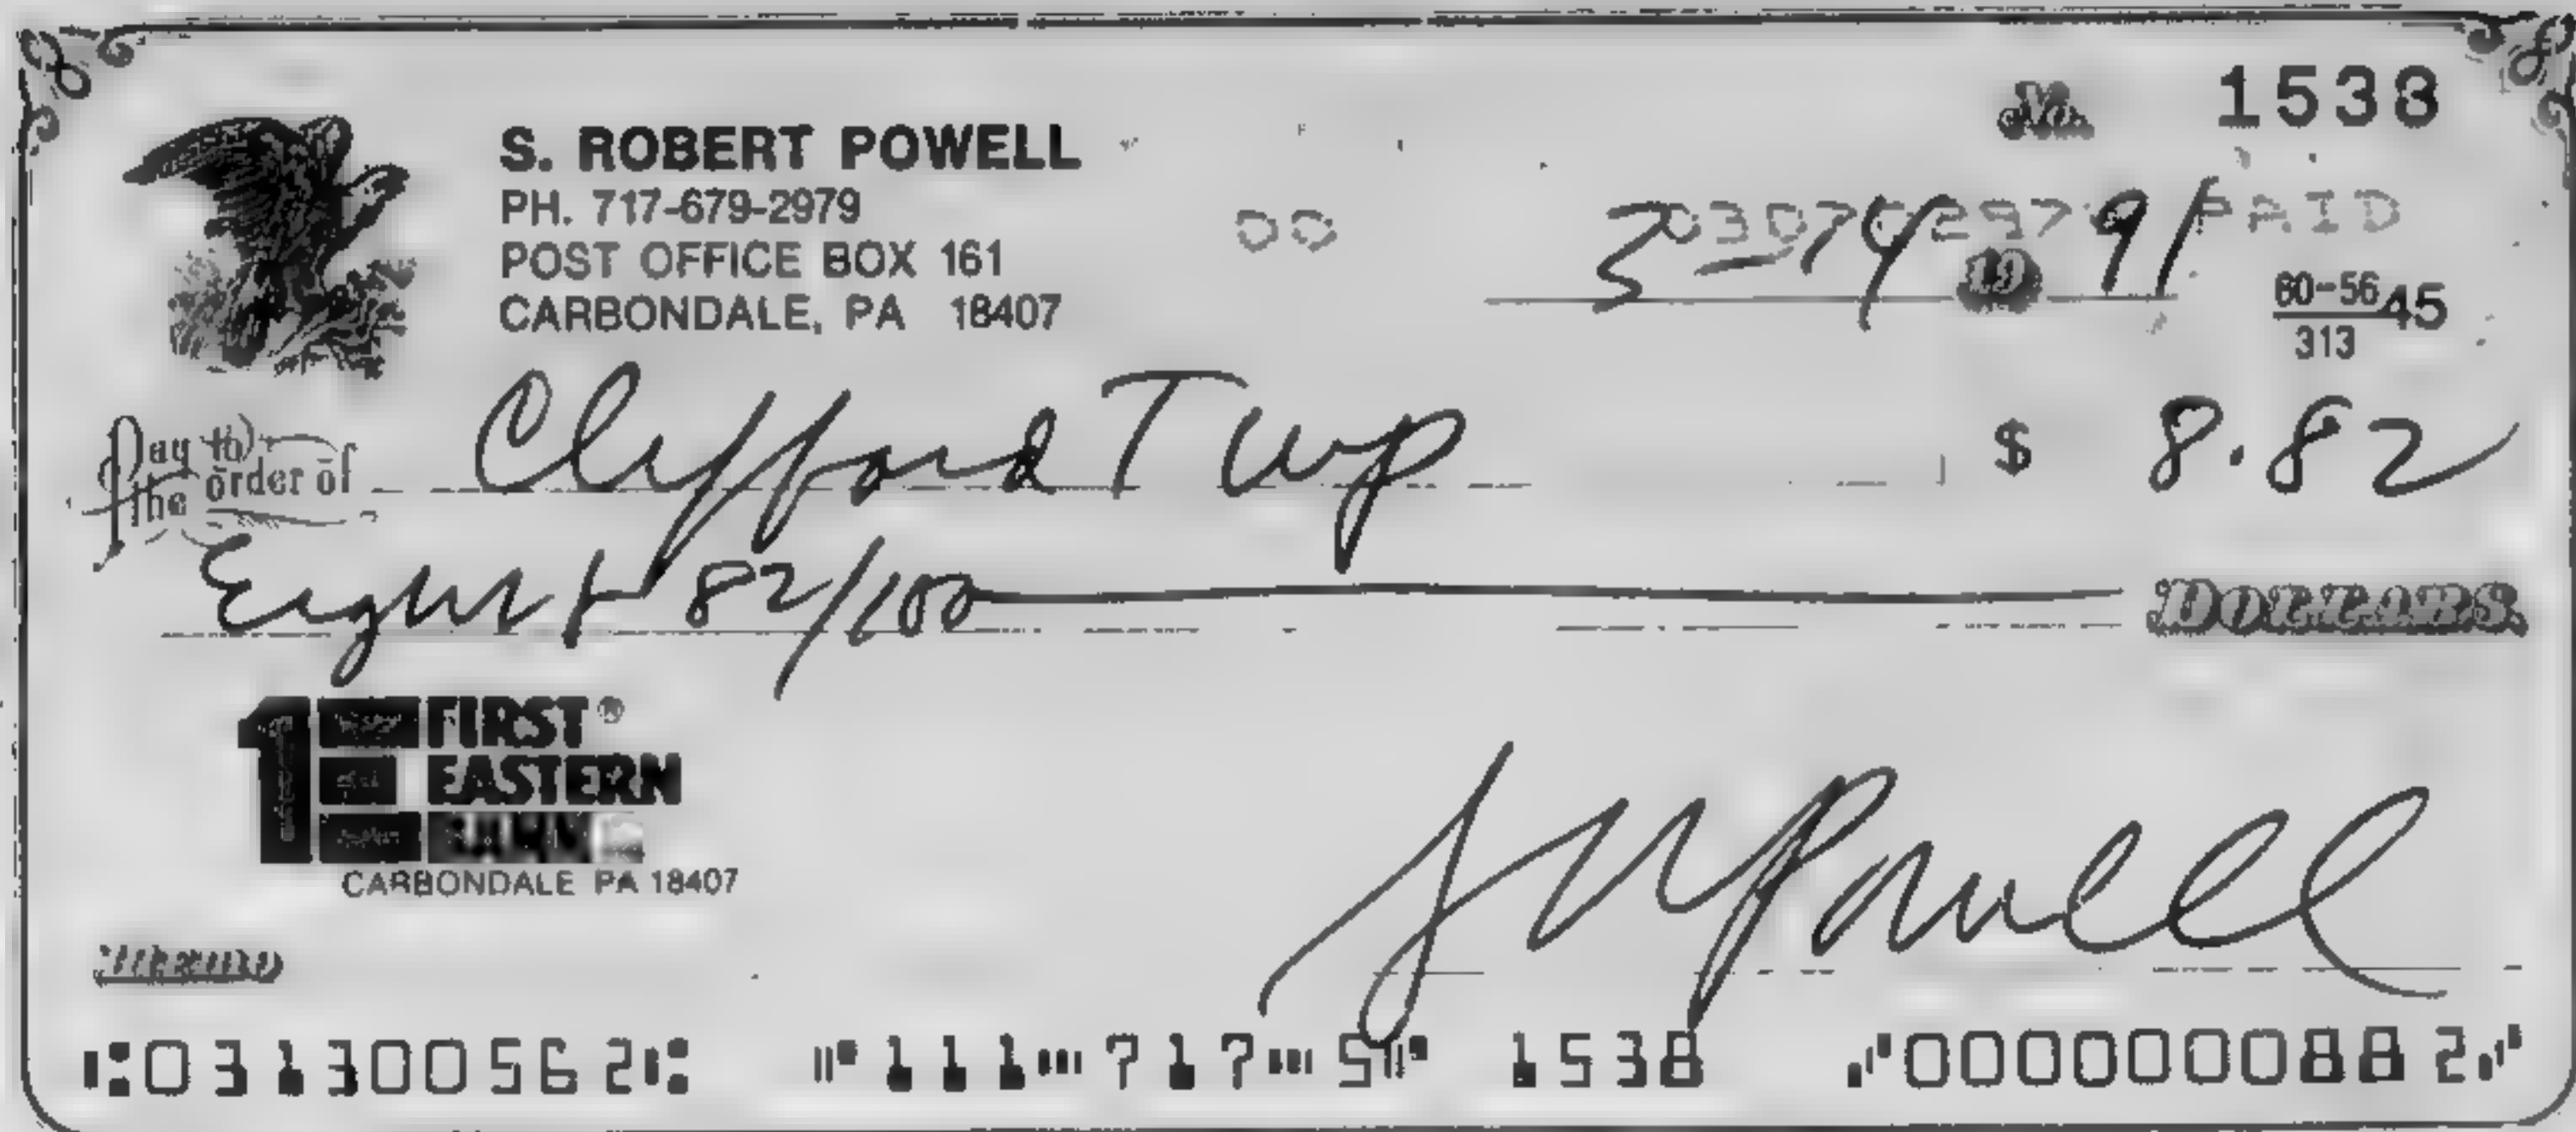 No. 1538
S. ROBERT POWELL
PH. 717-679-2979
POST OFFICE BOX 161
CARBONDALE, PA 18407
00
PAID
19 91
60-5645
313
Pay to the order of Clifford Twp $ 8.82
Eight + 82/100 DOLLARS.
1E FIRST®
EASTERN
CARBONDALE PA 18407
S R Powell
Memo
⑆031300562⑆ ⑈111⑉717⑉5⑈ 1538 ⑇0000000882⑇